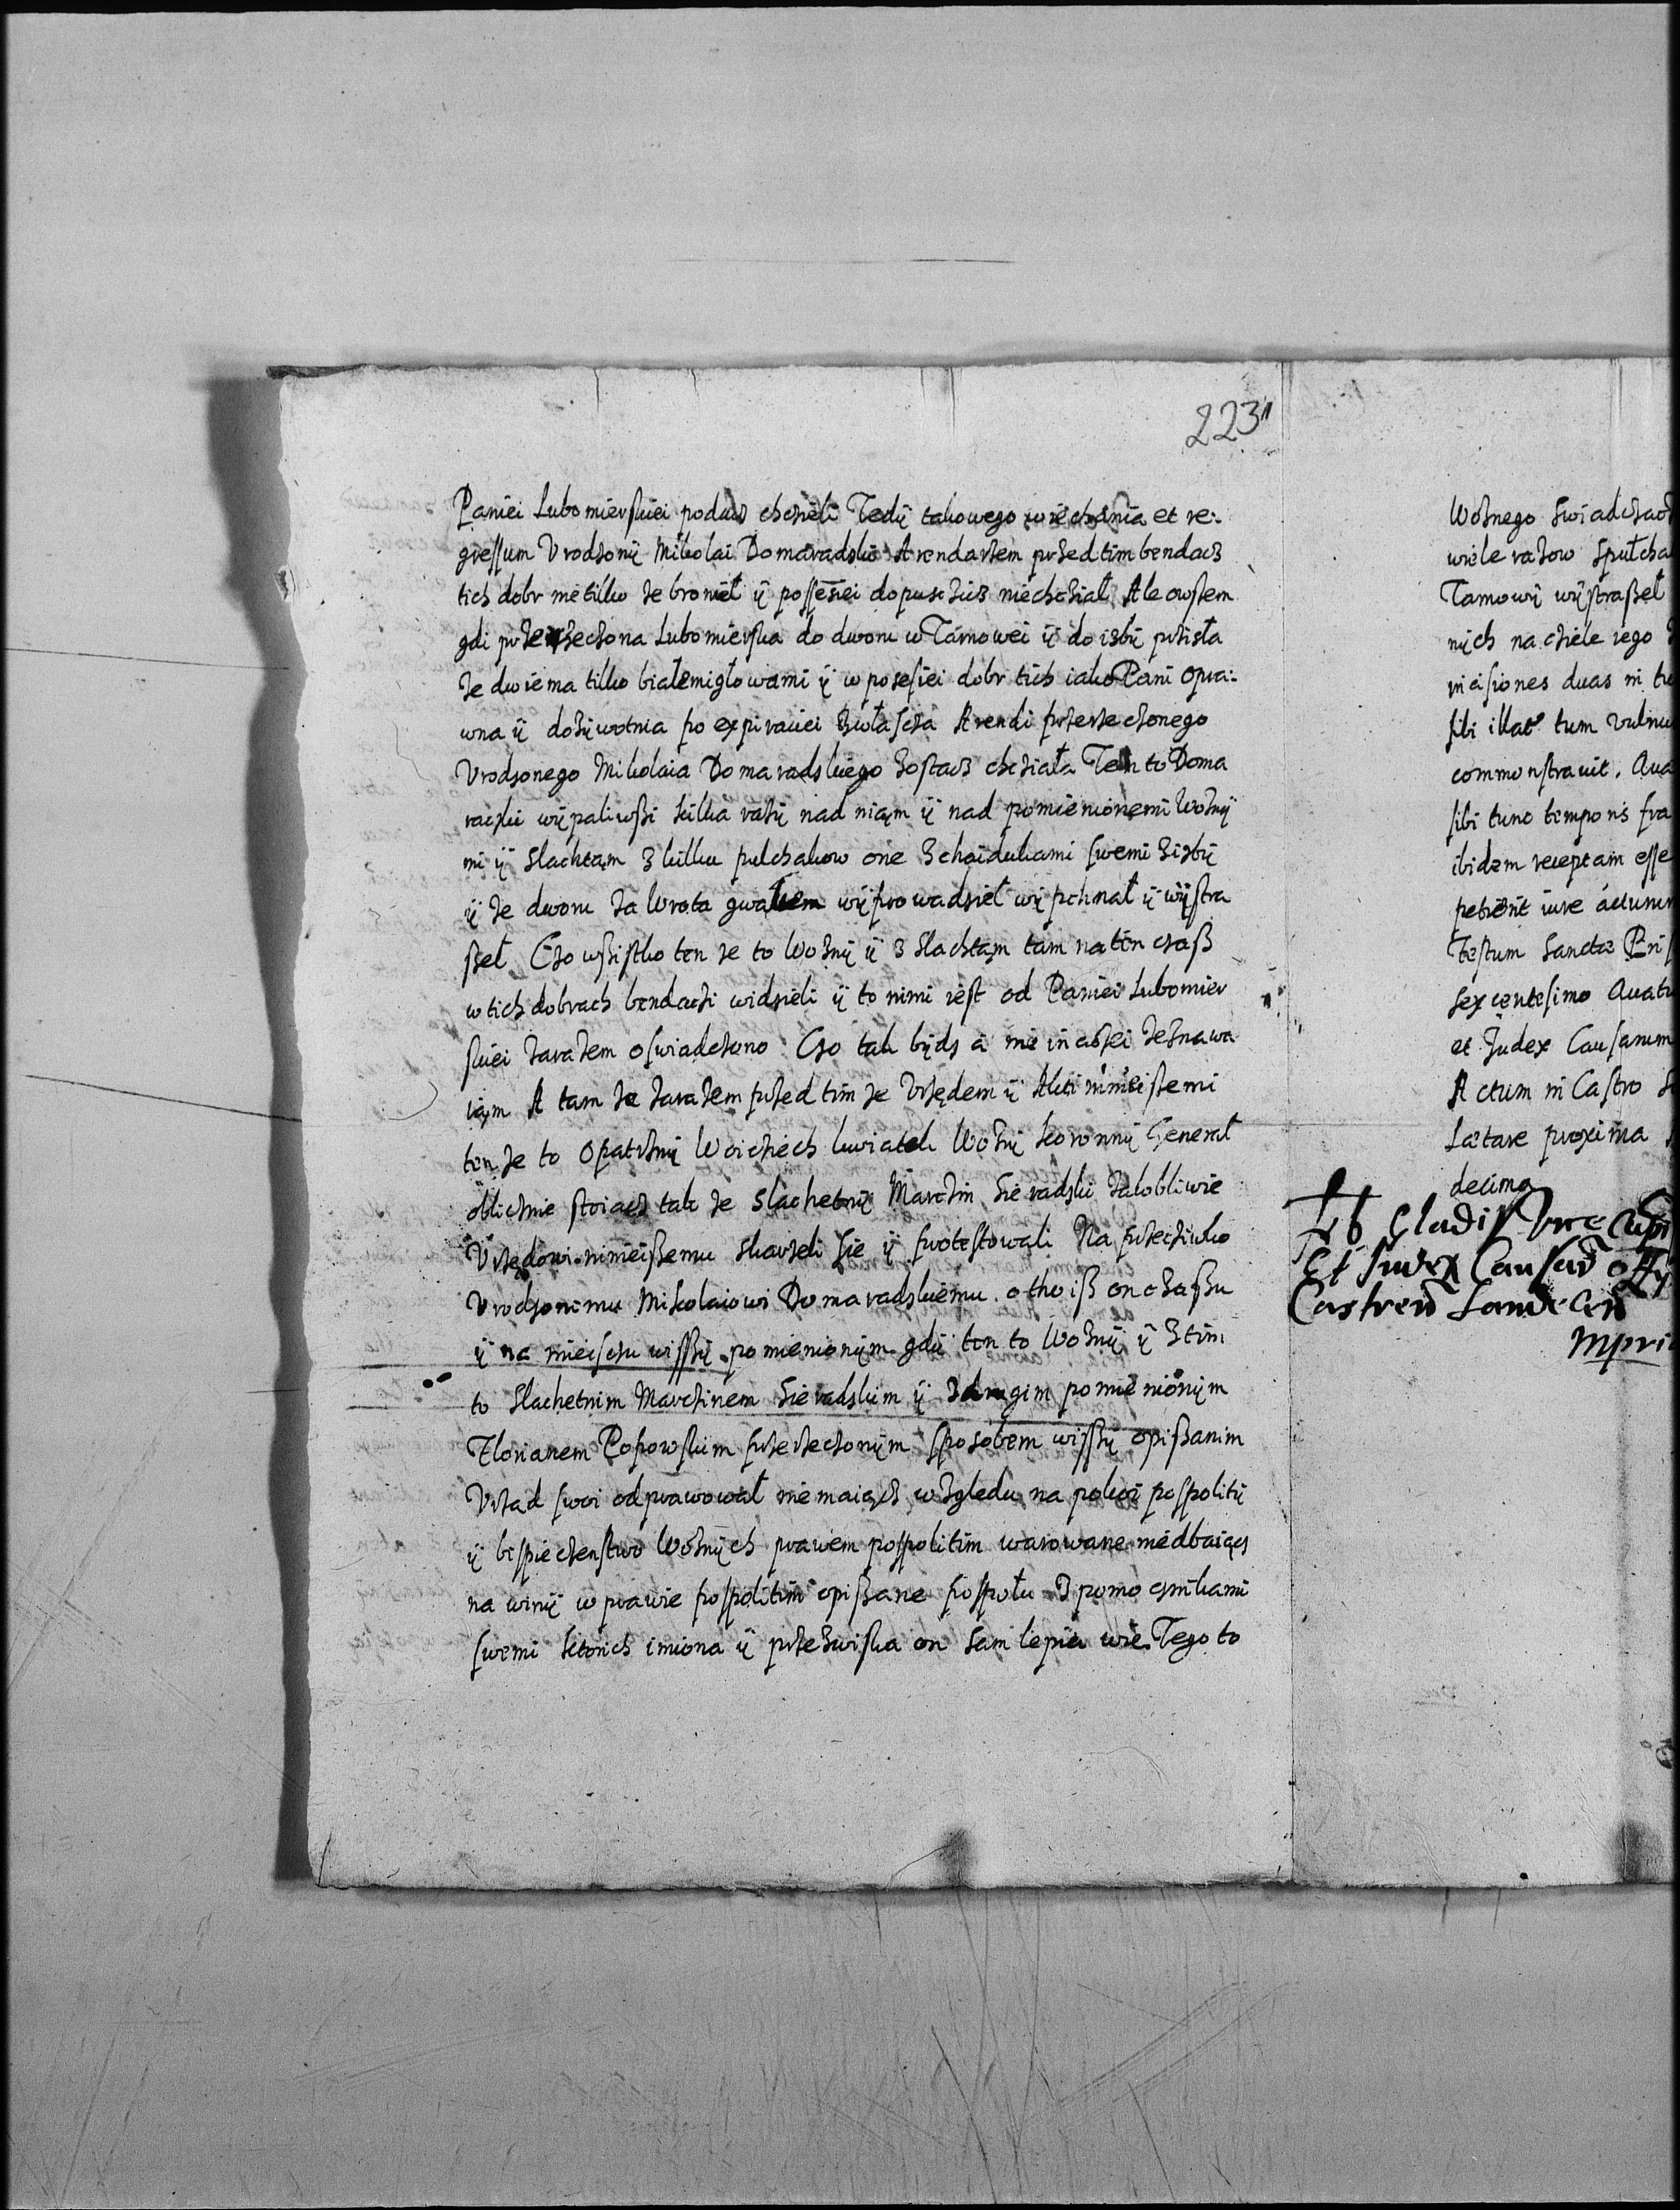 223
Paniei Lubomierskiei podacz chczieli Tedÿ takowego wiechania et re:
gressum Vrodzonÿ Mikolai Domaradski Arendarzem przed tim bendacz
tich dobr nie tilko ze bronieł ÿ possessiei dopusczicz niechcział Ale owszem
gdi przerzeczona Lubomierska do dworu w Tarnowei ÿ do izbÿ prziszła
ze dwiema tilko białemigłowami ÿ w posesiei dobr tich iako Pani opra:
wna ÿ dożÿwotnia po expiraciei zwłascza Arendi przerzeczonego
Vrodzonego Mikolaia Domaradskiego zostacz chcziała Ten to Doma
racski wÿpaliwßi kilka razÿ nad niąm ÿ nad pomienionemi Woznÿ
mi ÿ slachtąm z kilku pulchakow one z chaidukami swemi z izbÿ
ÿ ze dworu za Wrota gwałtem wÿprowadzieł wÿpchnał ÿ wÿstra
ßeł Czo wßistko ten ze to Woznÿ ÿ z slachtąm tam na tin czaß
w tich dobrach bendaczi widzieli ÿ to nimi iest od Paniei Lubomier
skiei zarazem oswiadczono Czo tak bÿdz a nie inaczei zeznawa
iąm A tam ze zarazem przed tim ze Vrzędem ÿ Akti ninieißemi
ten ze to Opatrznÿ Woiciech kwiatek Woznÿ koronnÿ Generał
oblicznie stoiacz tak ze slachetnÿ Marczin Sieradzki załobliwie
Vrzędowi ninieißemu skarzeli sie ÿ protestowali Na przecziwko
Vrodzonemu Mikolaiowi Domaradskiemu o tho iß on czaßu
ÿ na mieisczu wißßÿ pomienionÿm gdÿ ten to Woznÿ ÿ z tim
to slachetnim Marczinem Sieradskim ÿ z drugim pomienionÿm
Florianem Popowskim przerzeczonÿm sposobem wißßÿ opißanim
Vrząd swoi odprawował nie maiącz względu na pokoi pospolitÿ
ÿ bespieczenstwo Woznÿch prawem pospolitim warowane niedbaiącz
na winÿ w prawie pospolitim opißane pospołu z pomocznikami
swemi ktorich imiona ÿ przezwiska on sam lepiei wie Tego to
Woznego swiadcza
wiele razow spułcha
Tarnowÿ wÿstraßeł
nÿch na cziele iego
incisiones duas in
sibi illat tum vulnu
commonstravit. Qua
sibi tunc temporis fra
ibidem receptam esse
petierit iure actum
festum Sanctæ Pris
sexcentesimo Quatu
et Judex Causarum
Actum in Castro S
Lætare proxima
decimo
Et Judex Causar Offi
Castren Sandecen
mpri